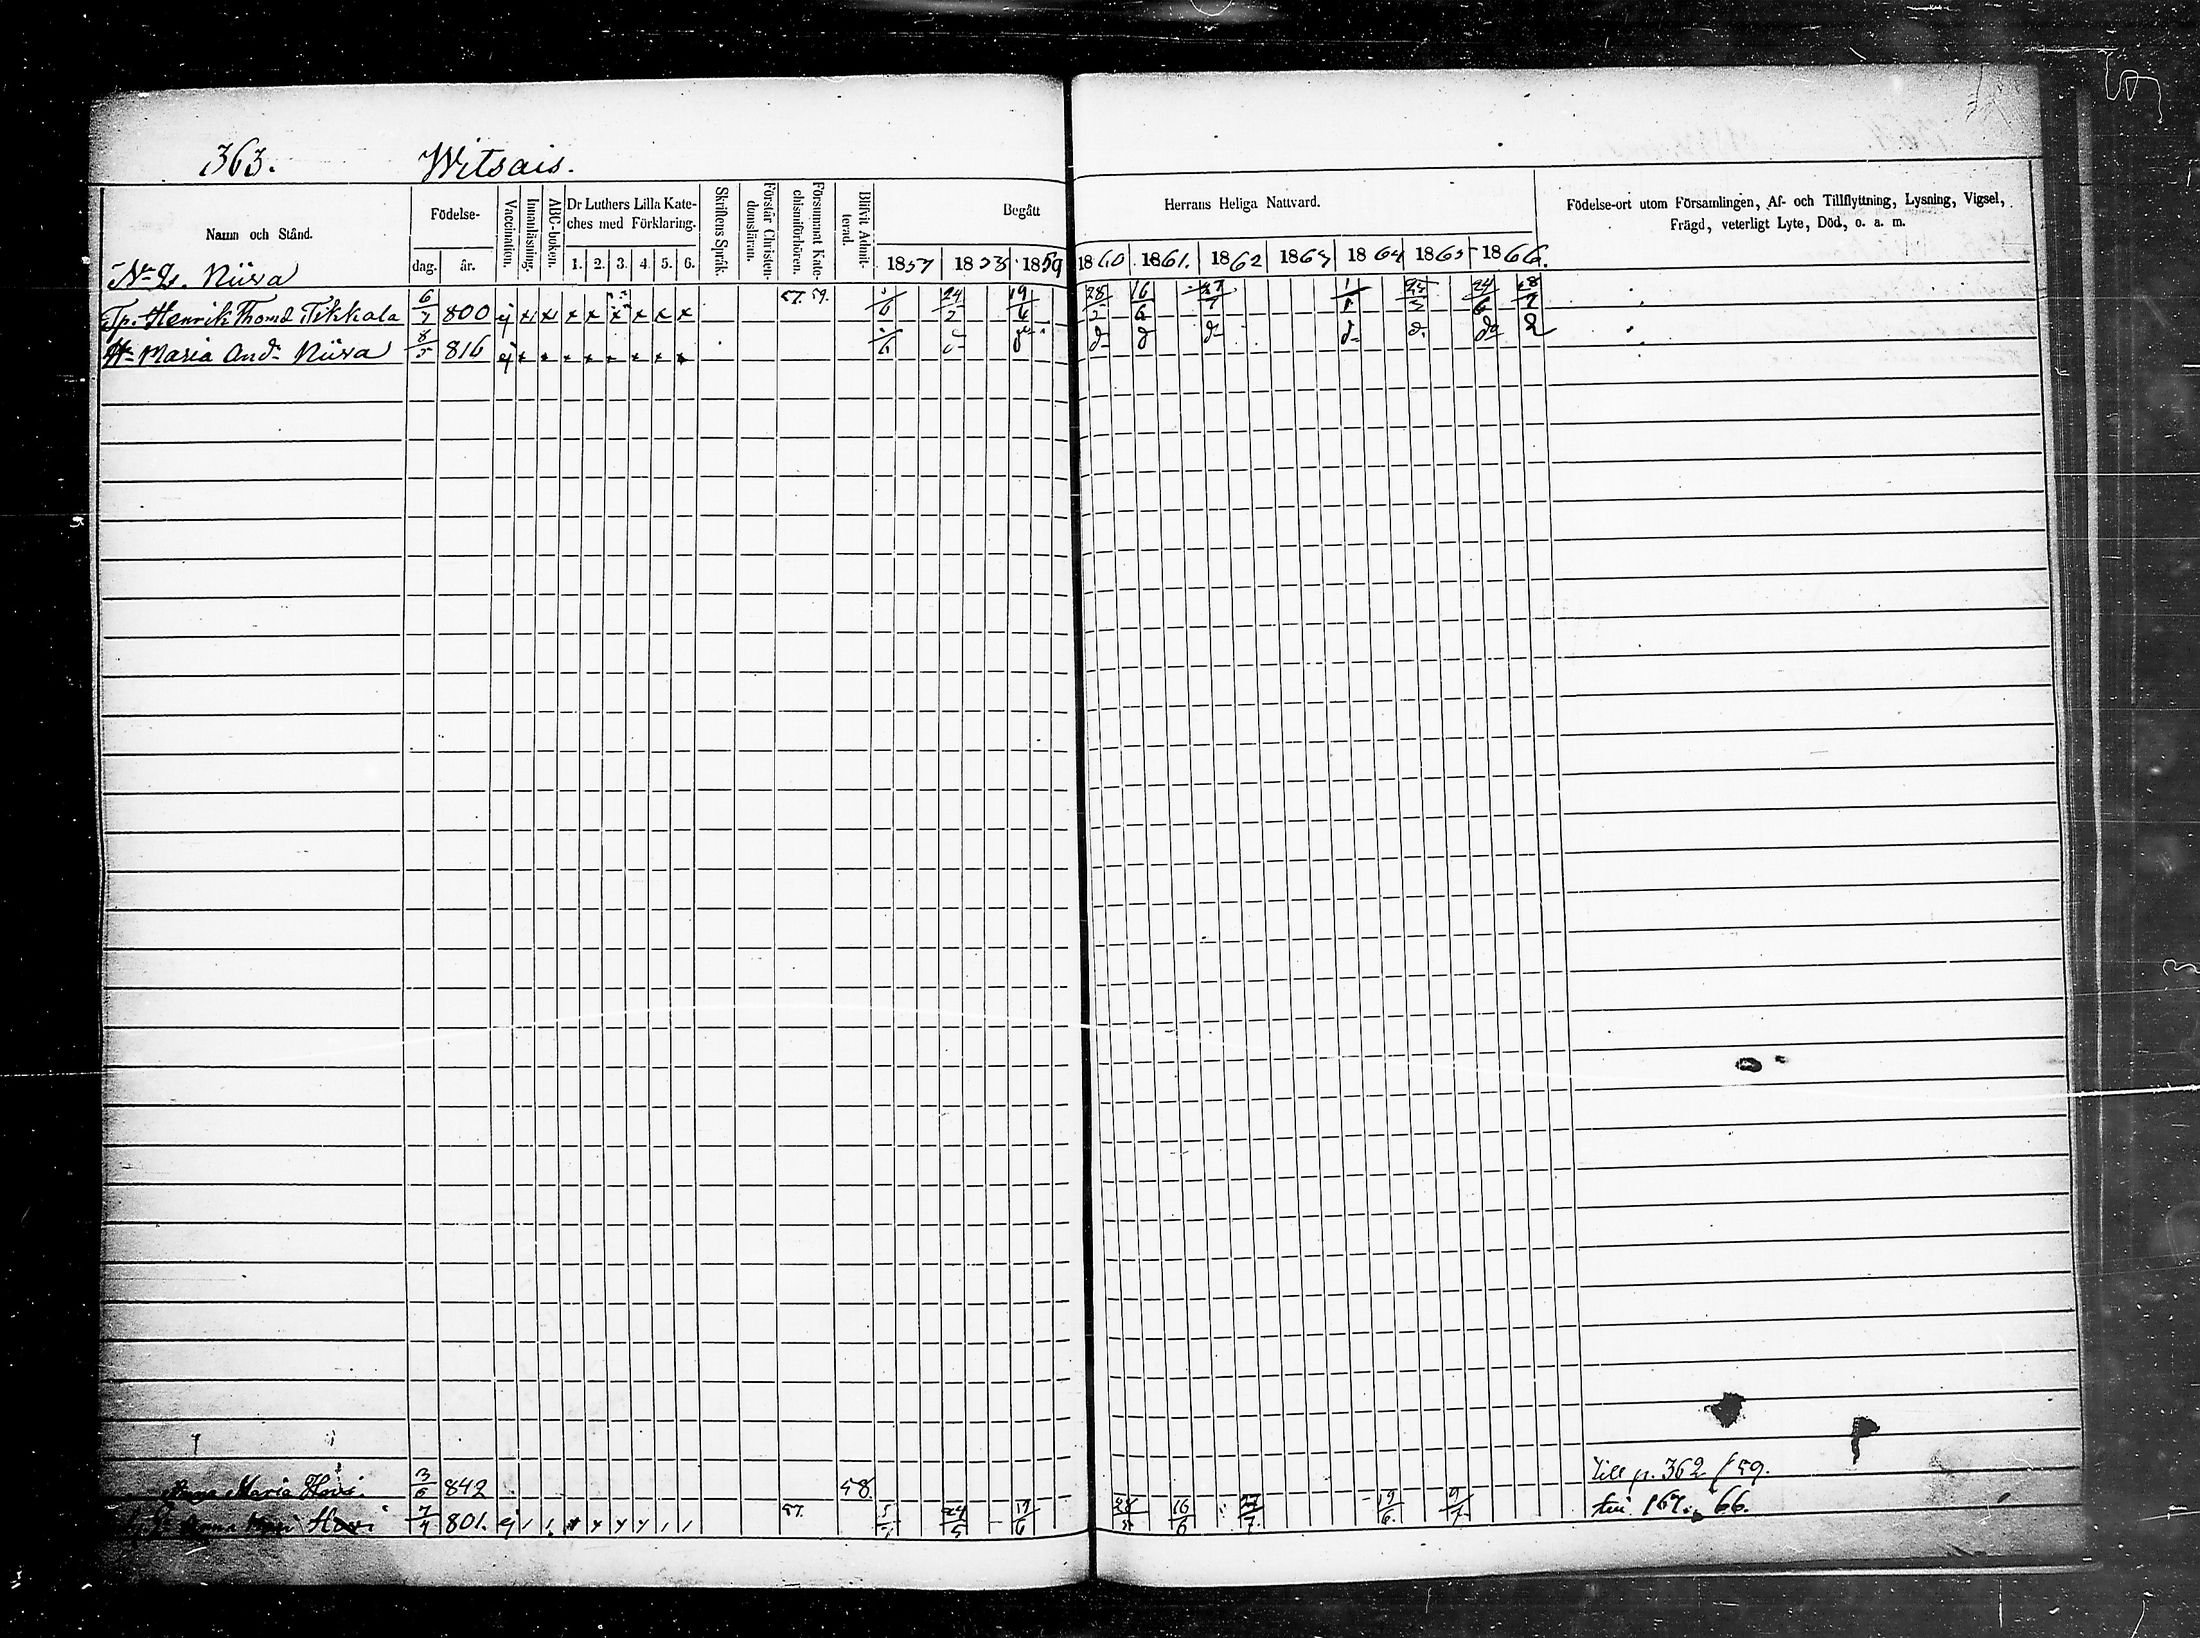 363. Witsais.
Namn och Stånd. Födelse- dag. år. Vaccination. Innanläsning. ABC-boken. Dr Luthers Lilla Kateches med Förklaring. 1. 2. 3. 4. 5. 6. Skriftens Språk. Förstår Christendomsläran. Försummat Katechismiförhören. Blifvit Admitterad. Begått Herrans Heliga Nattvard. Födelse-ort utom Församlingen, Af- och Tillflyttning, Lysning, Vigsel, Frägd, veterligt Lyte, Död, o. a. m.
1857 1858 1859 1860 1861. 1862 1863 1864 1865 1866.
No 2. Niira
Tp. Henrik Thomd Tikkala 6/7 800 ej x x x x x x x x 57. 59. 24/2 19/6 28/5 16/6 27/7 24/6 28/7
Hu Maria Andr Niira 8/5 816 ej x x x x x x x x
Anna Maria Hovi. 3/5 842 58. till p. 362 / 59.
Anna Hovi 7/4 801. ej 57. 24/5 19/6 28/5 16/6 27/7 19/6 9/7 66.